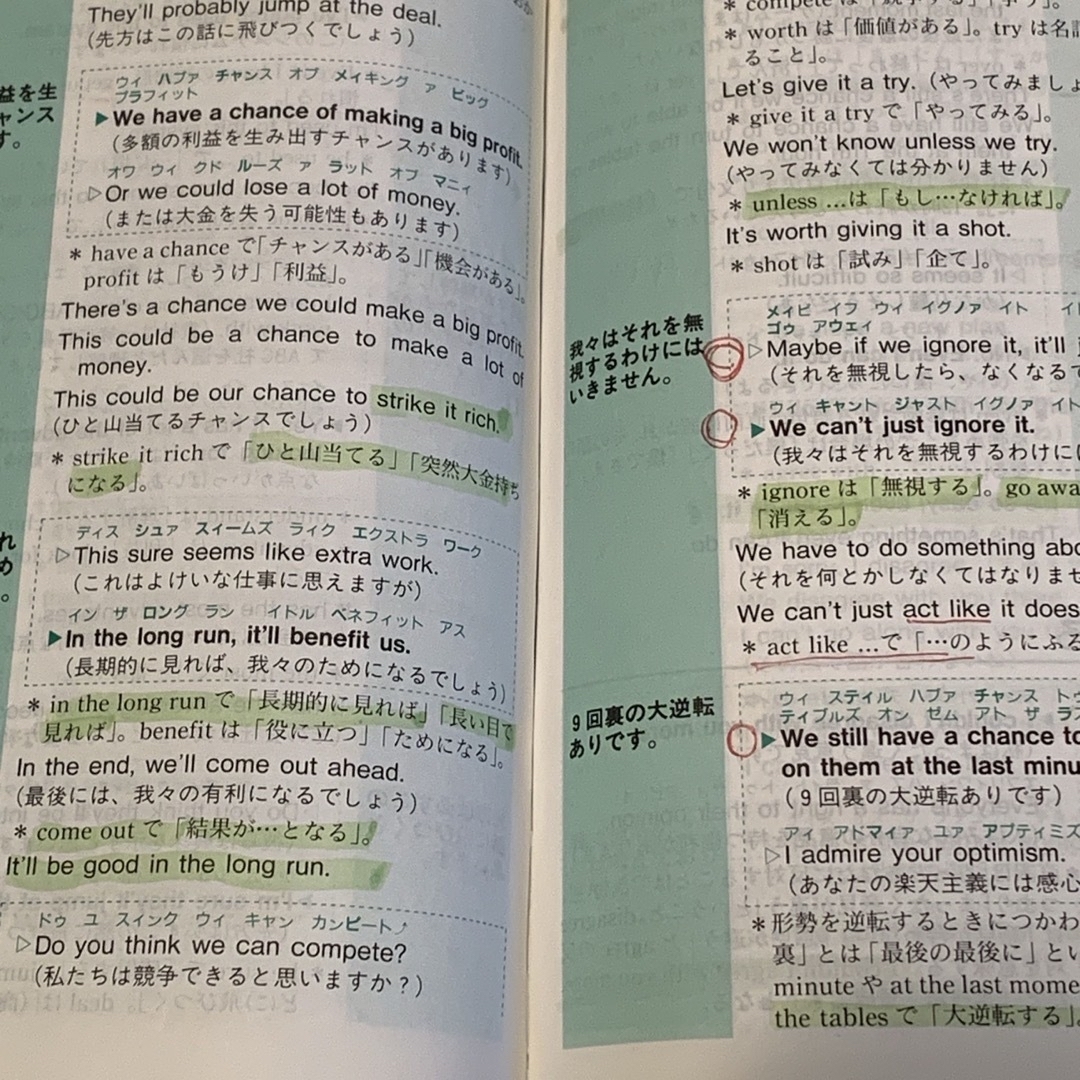 They'll probably jump at the deal.
(先方はこの話に飛びつくでしょう)
益を生
ャンス
す。
ウィ ハブァ チャンス オブ メイキング ァ ビッグ
プラフィット
▶We have a chance of making a big profit.
(多額の利益を生み出すチャンスがあります)
オワ ウィ クド ルーズ ァ ラット オブ マニィ
▷Or we could lose a lot of money.
(または大金を失う可能性もあります)
* have a chance で「チャンスがある」「機会がある」。
profit は「もうけ」「利益」。
There's a chance we could make a big profit.
This could be a chance to make a lot of
money.
This could be our chance to strike it rich.
(ひと山当てるチャンスでしょう)
* strike it rich で「ひと山当てる」「突然大金持ち
になる」。
れ
め
。
ディス シュァ スイームズ ライク エクストラ ワーク
▷This sure seems like extra work.
(これはよけいな仕事に思えますが)
イン ザ ロング ラン イトル ベネフィット アス
▶In the long run, it'll benefit us.
(長期的に見れば、我々のためになるでしょう)
* in the long run で「長期的に見れば」「長い目で
見れば」。benefit は「役に立つ」「ためになる」。
In the end, we'll come out ahead.
(最後には、我々の有利になるでしょう)
* come out で「結果が…となる」。
It'll be good in the long run.
ドゥ ユ スインク ウィ キャン カンピート
▷Do you think we can compete?
(私たちは競争できると思いますか?)
* compete は
* worth は「価値がある」。try は名
ること」。
Let's give it a try. (やってみましょ
* give it a try で「やってみる」。
We won't know unless we try.
(やってみなくては分かりません)
* unless …は「もし…なければ」。
It's worth giving it a shot.
* shot は「試み」「企て」。
我々はそれを無
視するわけには
いきません。
メイビ イフ ウィ イグノァ イト
ゴゥ アウェイ
▷Maybe if we ignore it, it'll
(それを無視したら、なくなるで
ウィ キャント ジャスト イグノァ イト
▶We can't just ignore it.
(我々はそれを無視するわけに
* ignore は「無視する」。go awa
「消える」。
We have to do something abo
(それを何とかしなくてはなりませ
We can't just act like it does
* act like …で「…のようにふる
9回裏の大逆転
ありです。
ウィ スティル ハブァ チャンス トゥ
ティブルズ オン ゼム アト ザ ラス
▶We still have a chance to
on them at the last minu
(9回裏の大逆転ありです)
アィ アドマイァ ユァ アプティミズ
▷I admire your optimism.
(あなたの楽天主義には感心
*形勢を逆転するときにつかわ
裏」とは「最後の最後に」とい
minute や at the last mome
the tables で「大逆転する」。